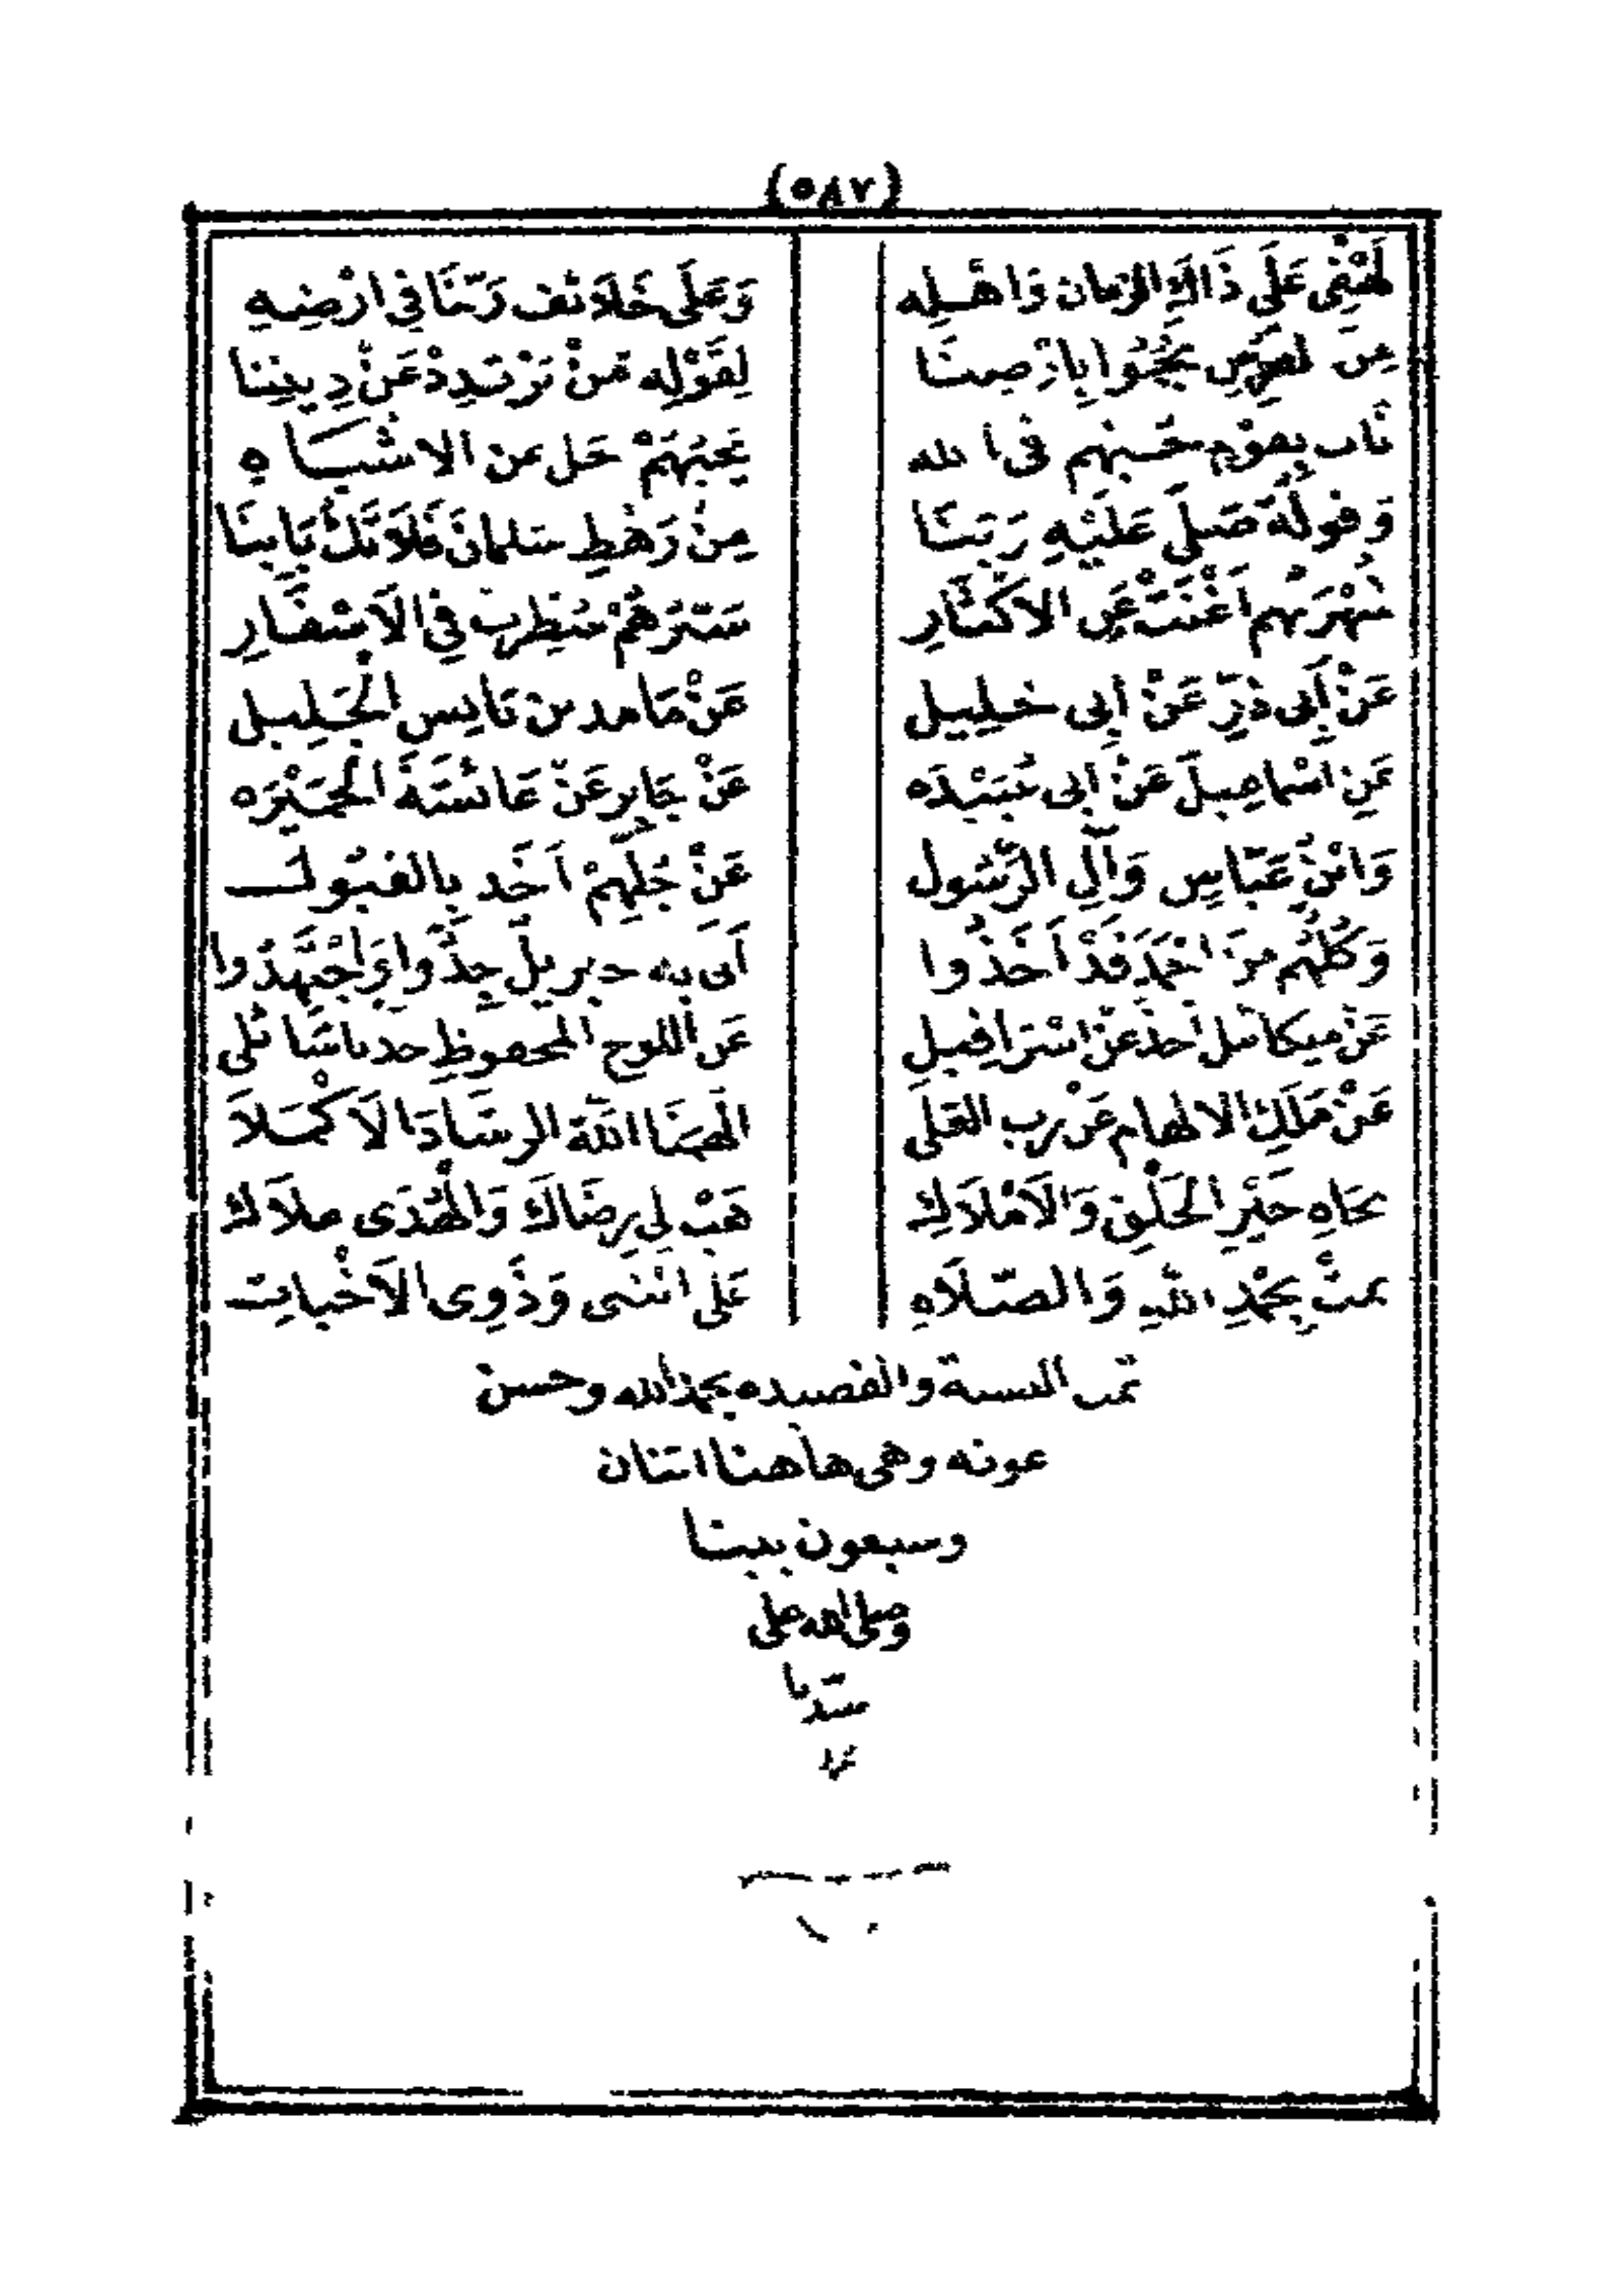 (٥٨٧)
لَهْفِي عَلَى ذَاكَ الزمان وَاهْلِه وَعَلَى خَلَائف رَبّنَا فِي ارْضِهِ
مِن نُجُبُوا بِارْضِنَا لِقَوْلِه مَنْ يَرْتَدِدْ عَنْ دِينِنَا
بِقَوْمٍ فى الله يُحِبُّهُمْ جَل عن الاشْبَاهِ
وَقولُهُ صَلَّى عَلَيْهِ رَبّنَا مِنْ رَهْطِ سَلمانَ فَلَا تَكُ
شُهْرَتُهم اَغْنَتْ عَنِ الاكْثَارِ فِي الَاسْفَارِ
عَنْ أَبى ذَرّ عَنْ أَبِى خلِيل عَنْ بن الْجَلِيل
عَنِ اسْمَاعِيل عَنْ أبى عُبَيْدَه عَنْ جَابِرٍ عَنْ عَائشَةَ
وَابْن عَبّاسٍ وَآلِ الرَّسُول عَنْ جُلِّهِمْ اَخذ بِالقَبُول
وَكُلُّهُم مِنَ احْمَدَ قَدْ اَخَذُوا أَتَى بِه جبريل جِدًّا وَاجْتَهِدُوا
عَنْ ميكائيل أخذ عَنْ اسْرَافِيل عَن اللوح المحفوظِ خذ يا سَائلى
عَنْ مَلَكِ الالهام عَنْ رب العَلى الْهَمَنَا اللهُ الرشَادَ الَاكْمَلَا
بِجَاهِ خَيْرِ الْخَلْقِ وَالَامْلَاكِ هَبْ لِى رِضَاكَ وَالْهُدَى ملَاك
تمتْ بِحَمْدِ اللهِ وَالصّلَاهِ عَلَى النَّبِى وَذَوِى الَاخْباتِ
تمت النسبة والقصيده بحمد الله وحسن
عونه وهى هاهنا اثنان
وسبعون بيتا
وصلى الله على
سيّدنا